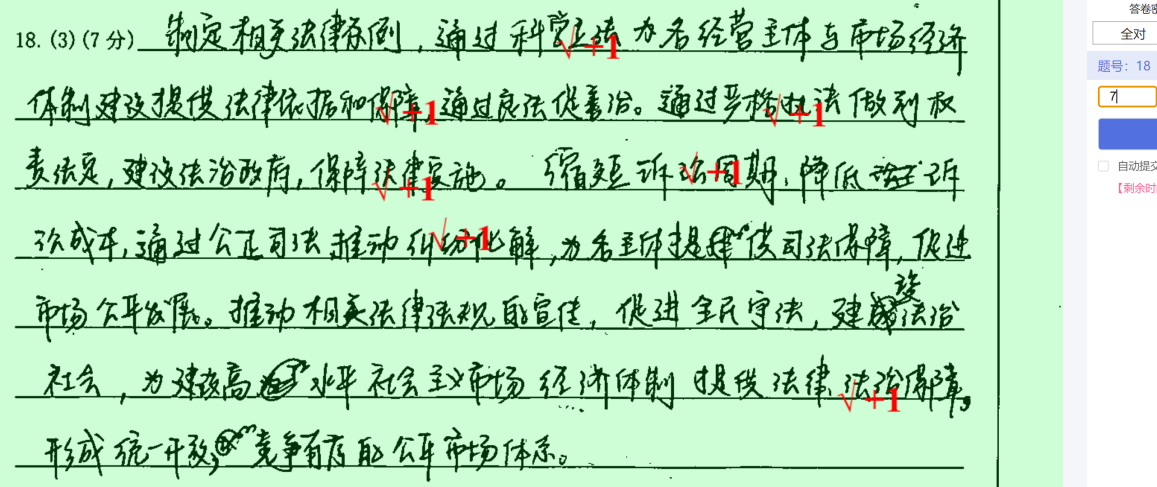 18.(3)(7分) 制定相关法律条例，通过科学立法 为各经营主体与市场经济
体制建设提供法律依据和保障，通过良法促善治。通过严格执法做到权
责法定，建设法治政府，保障法律实施。缩短诉讼周期、降低诉
讼成本，通过公正司法推动纠纷化解，为各主体提供司法保障，促进
市场公平发展。推动相关法律法规的宣传，促进全民守法，建设法治
社会，为建设高水平社会主义市场经济体制提供法律法治保障，
形成统一开放，竞争有序的公平市场体系。
√+1 √+1
√+1 √+1
√+1 √+1
√+1
√+1
全对
题号：18
7
自动提交
【剩余时